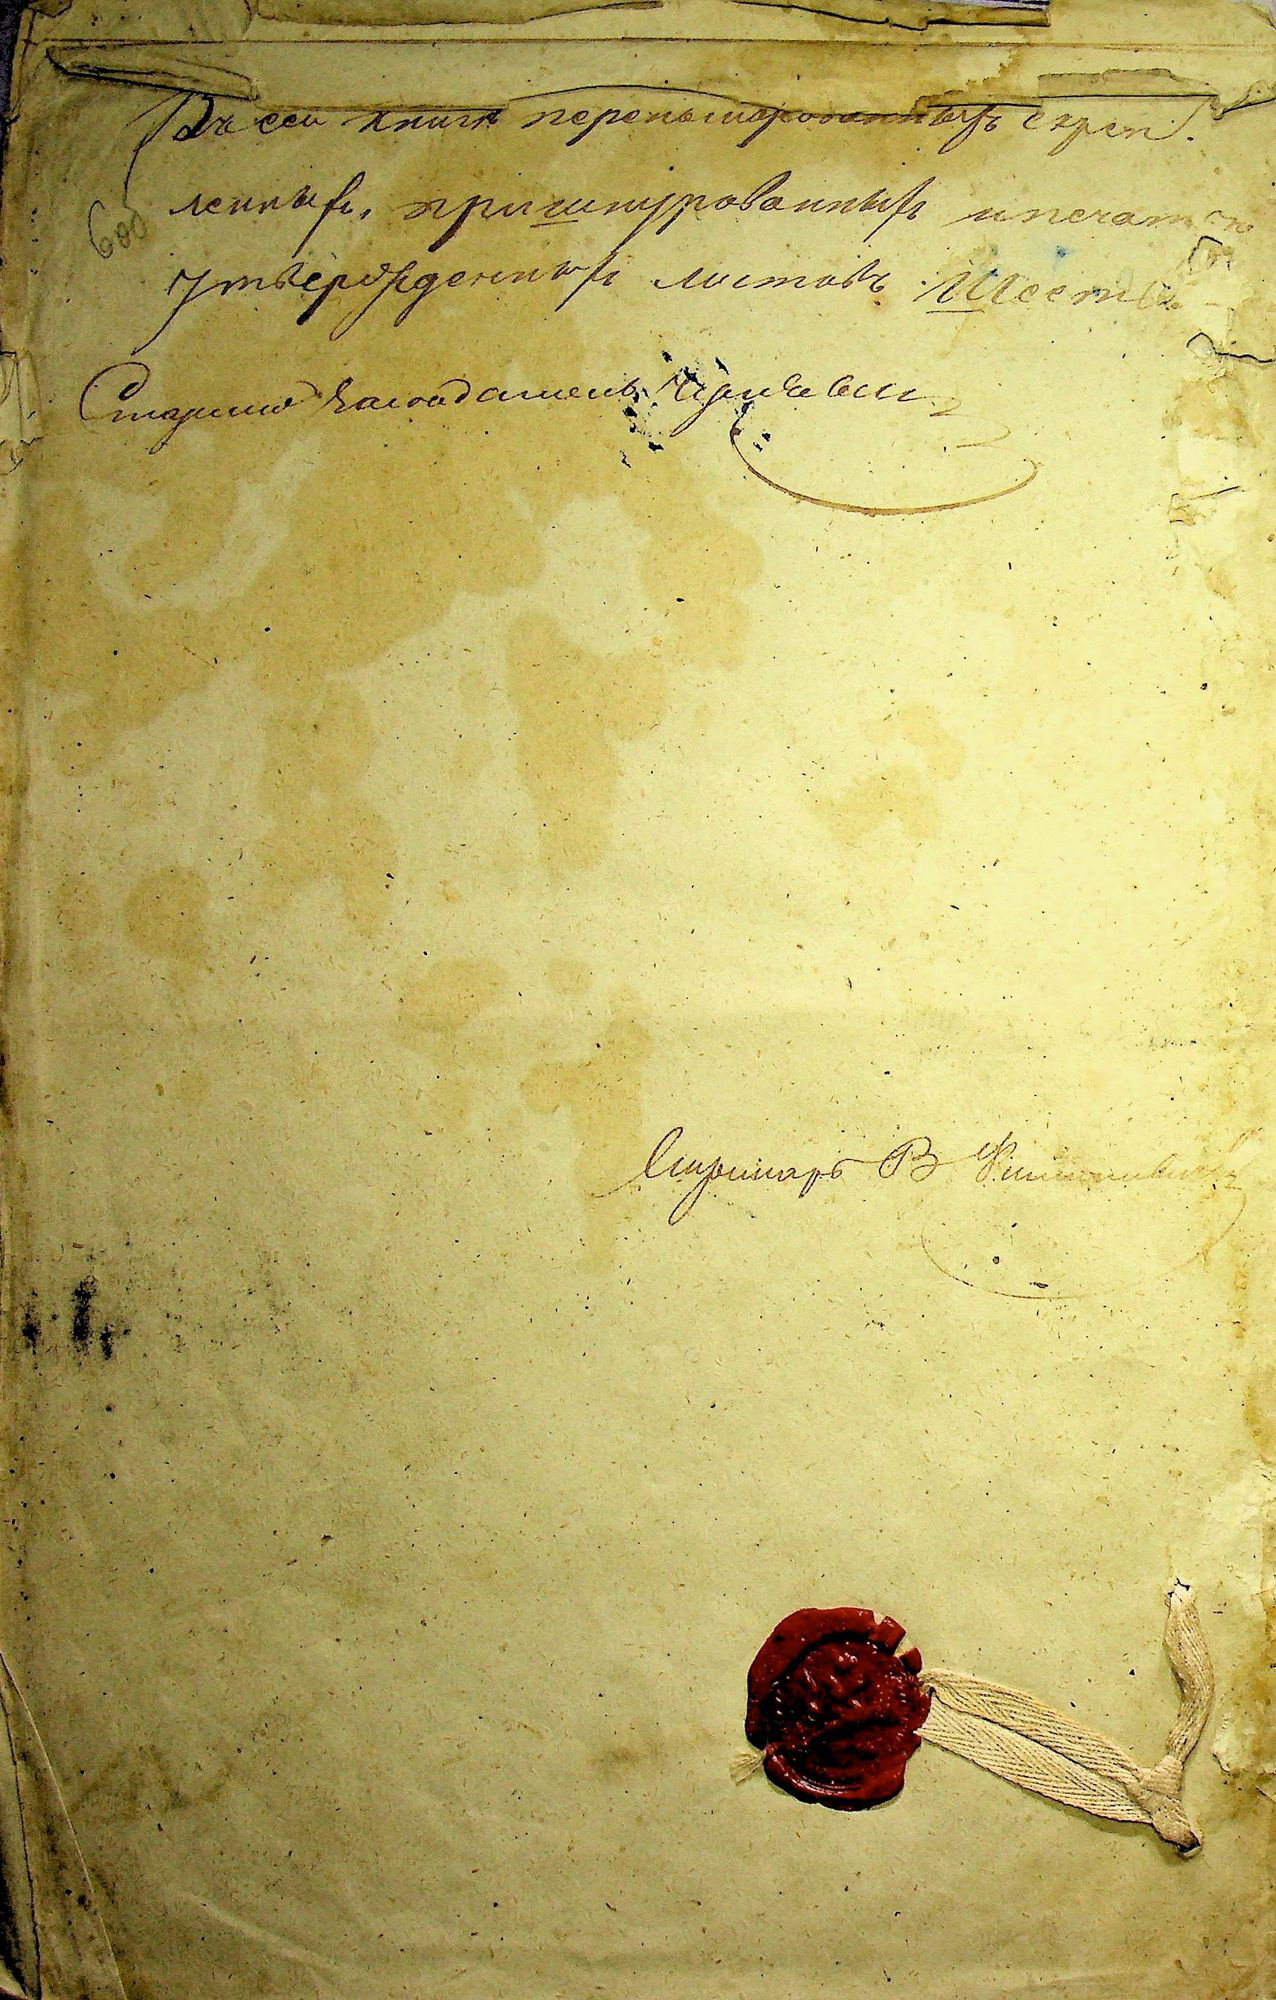 Въ сей книге перенумерованныхъ скреп
ленныхъ, пришнурованныхъ и печатью
600
утвержденныхъ листовъ Шестьсотъ
Старшiй Заседатель
Секретарь В